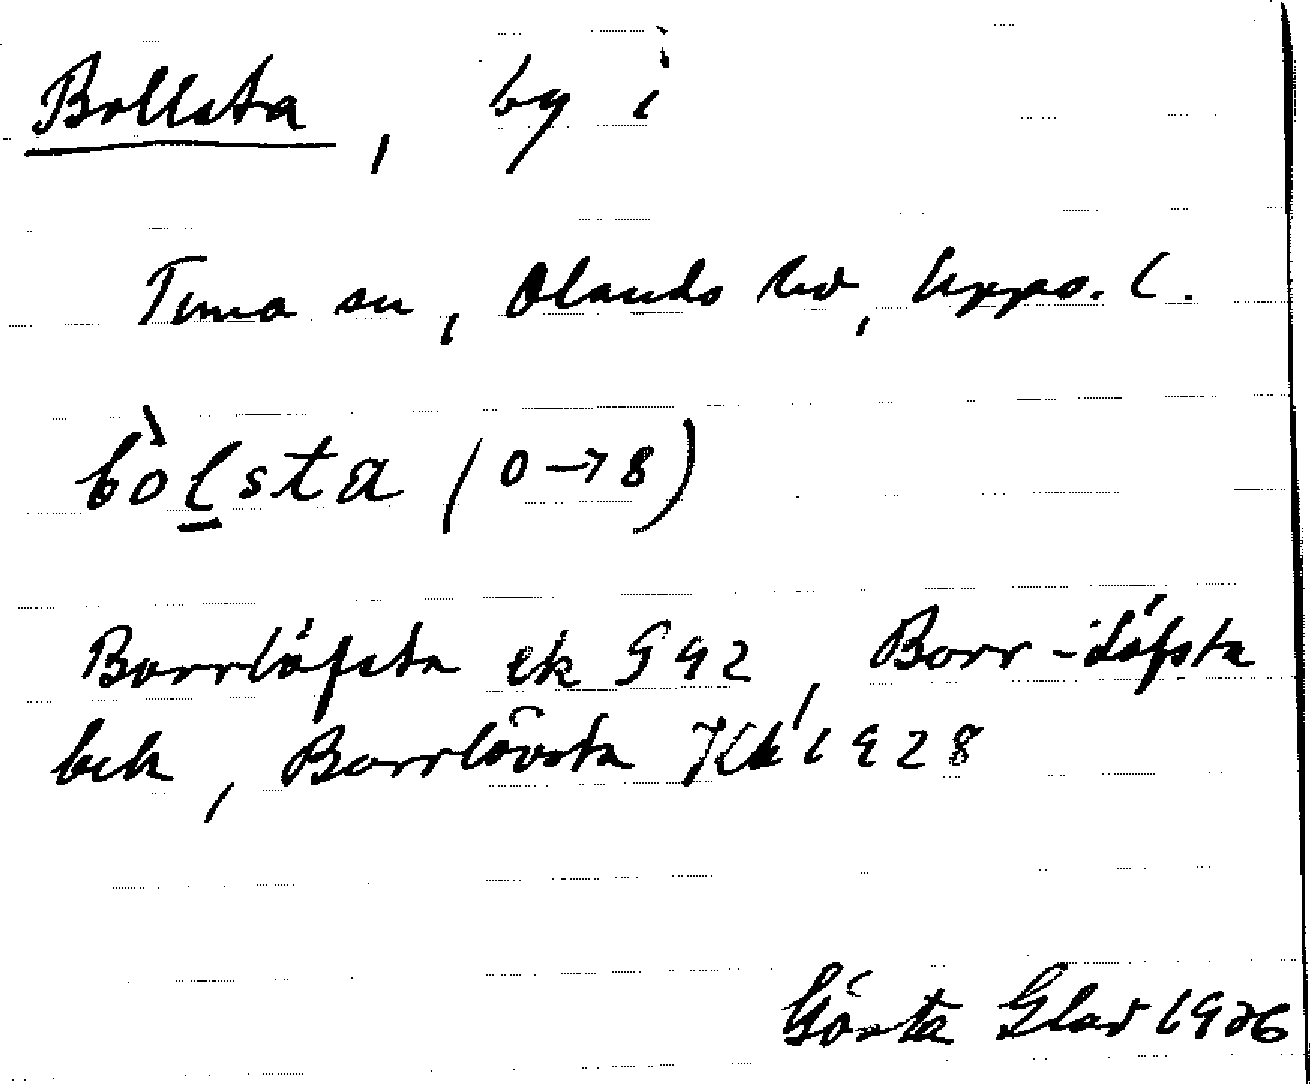 Bollsta, by i
Tuna sn, Olands hd, Upps. l.
bòlsta (o→8)
Borrlöfsta ek 992, Borr-Löfsta
bek, Borrlövsta Kk 1928
Gösta Glad 1926